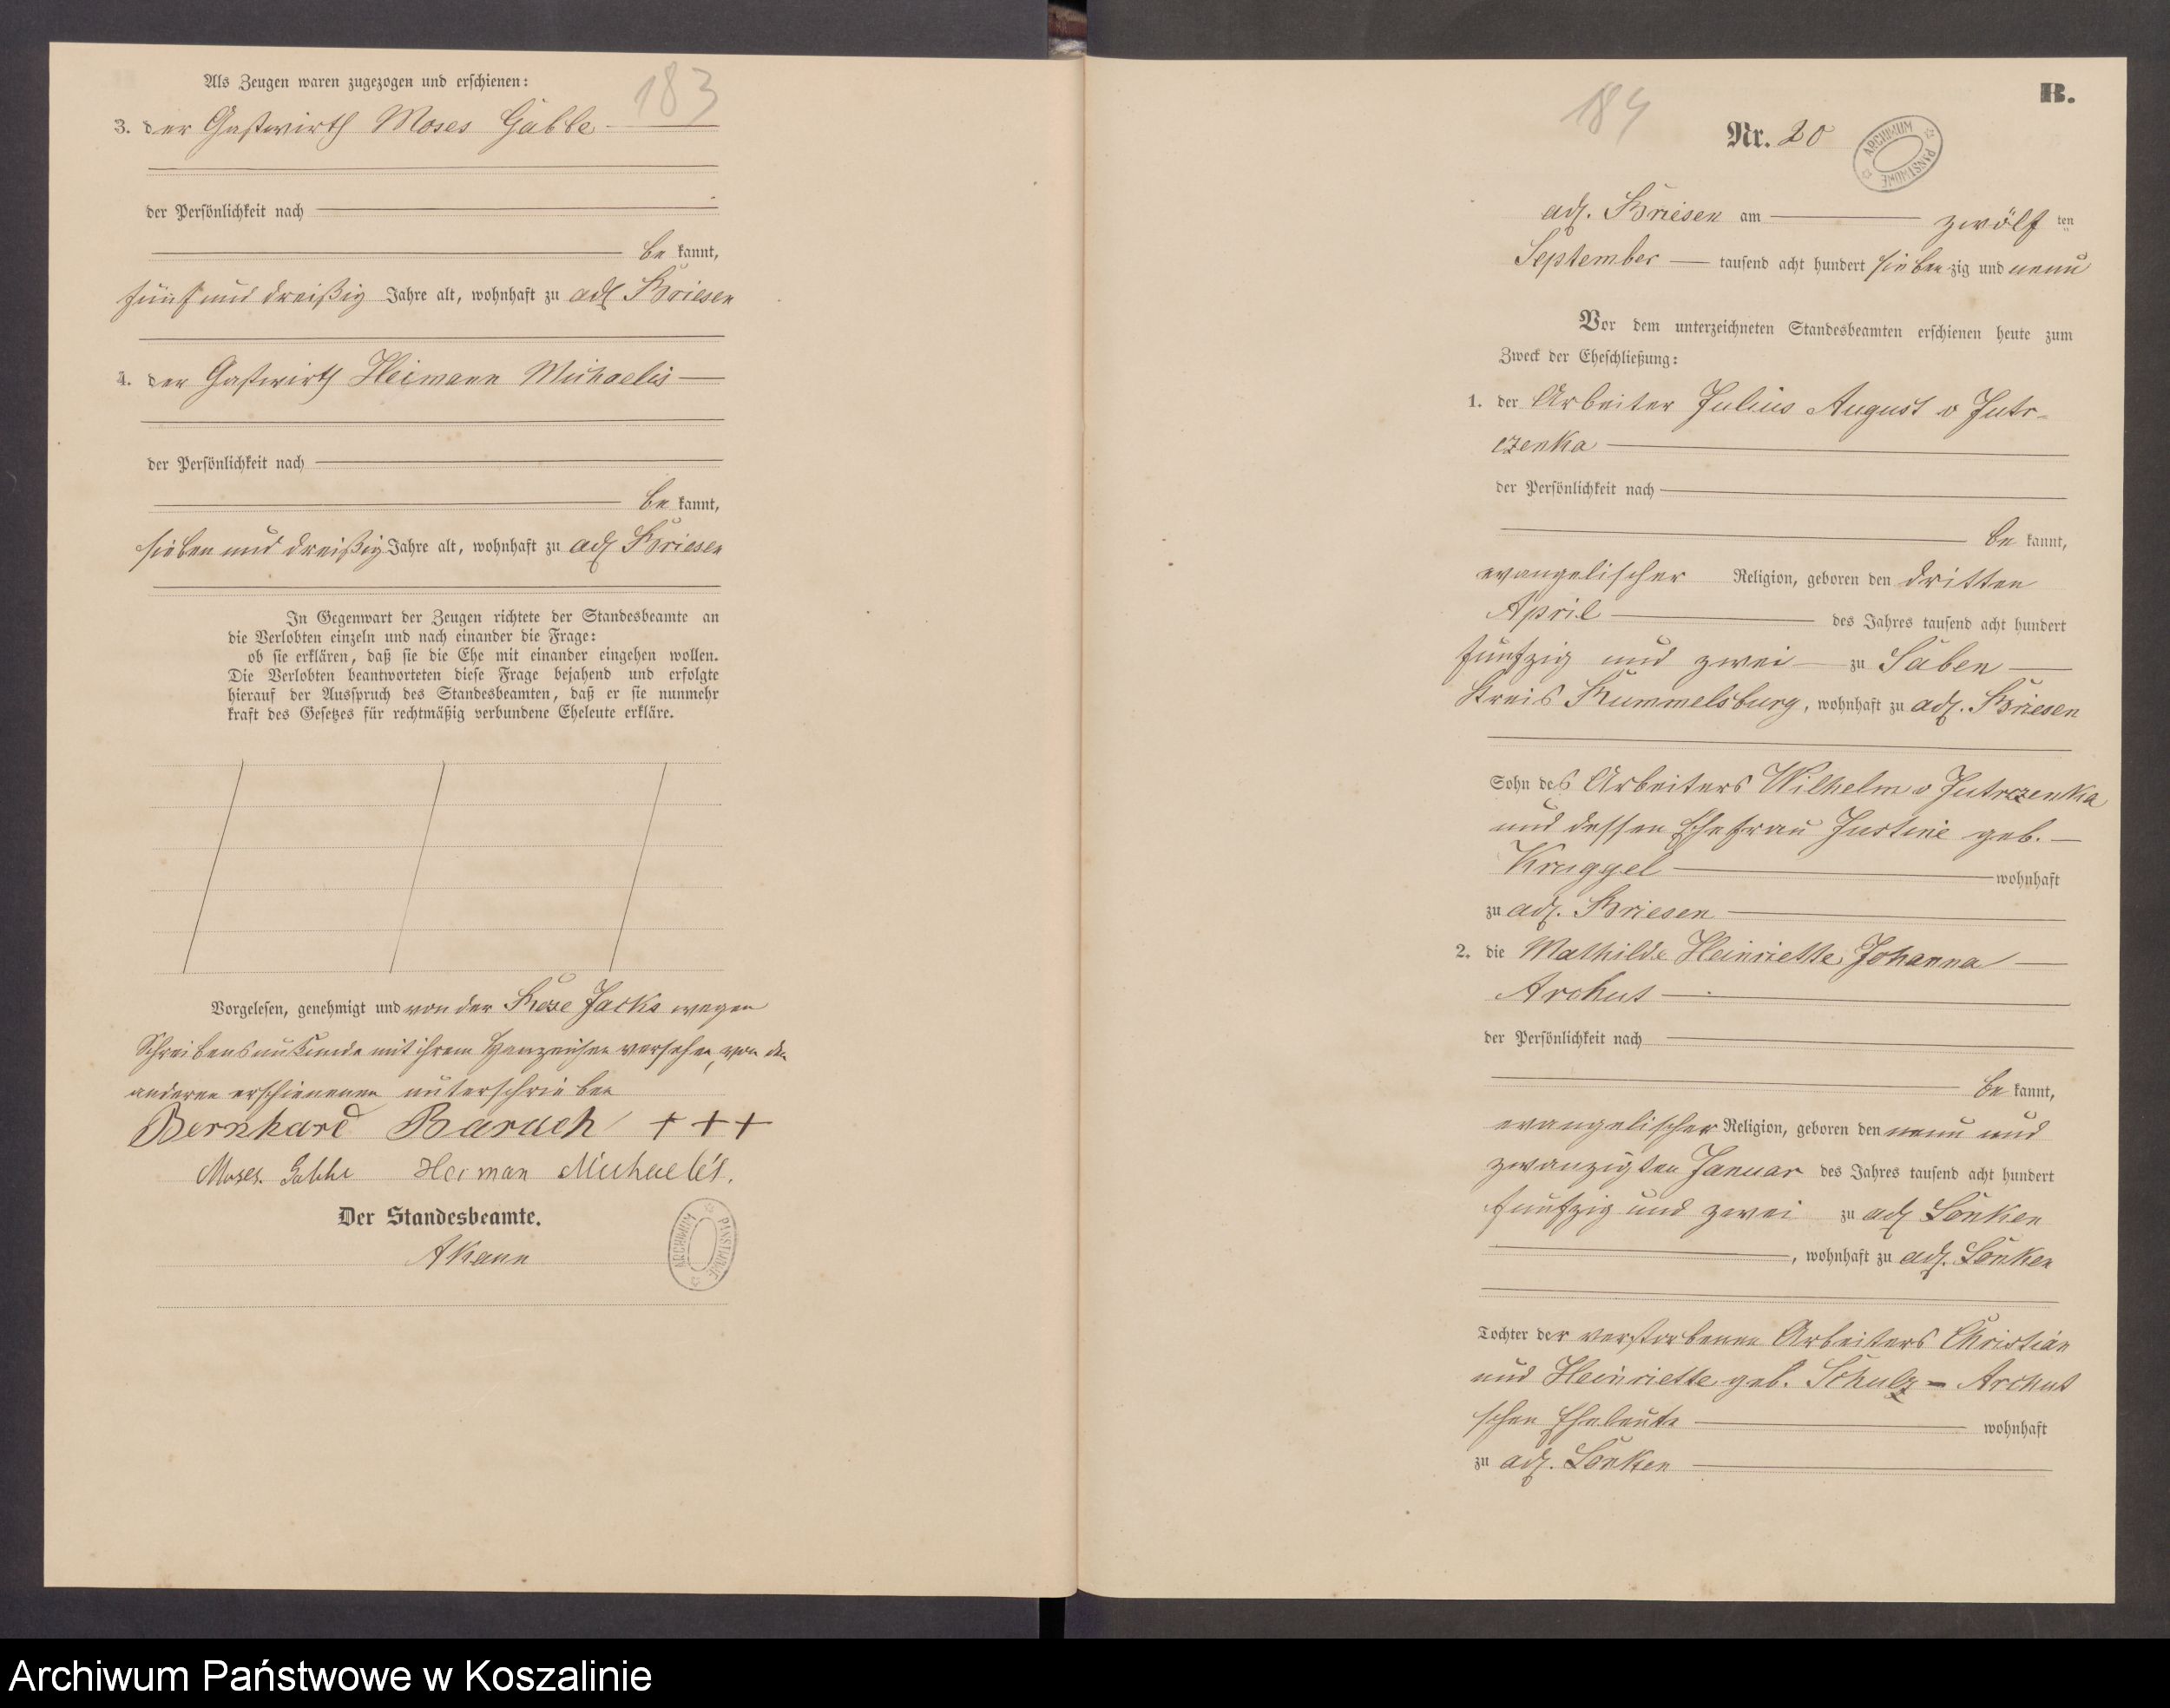 Als Zeugen waren zugezogen und erschienen:
183
3. der Gastwirth Moses Gabbe
der Persönlichkeit nach
be kannt,
fünf und dreißig Jahre alt, wohnhaft zu adl Briesen
4. der Gastwirth Heimann Michaelis
der Persönlichkeit nach
be kannt,
sieben und dreißig Jahre alt, wohnhaft zu adl Briesen
In Gegenwart der Zeugen richtete der Standesbeamte an
die Verlobten einzeln und nach einander die Frage:
ob sie erklären, daß sie die Ehe mit einander eingehen wollen.
Die Verlobten beantworteten diese Frage bejahend und erfolgte
hierauf der Ausspruch des Standesbeamten, daß er sie nunmehr
kraft des Gesetzes für rechtmäßig verbundene Eheleute erkläre.
Vorgelesen, genehmigt und von der Jacks wegen
Schreibensunkunde mit ihrem Handzeichen versehen, von den
anderen erschienenen unterschrieben
Bernhard Baruch +++
Moses. Gabbe Heiman Michaelis.
Der Standesbeamte.
AKann
ARCHIWUM PAŃSTWOWE
B.
184
Nr. 20
ARCHIWUM PAŃSTWOWE
adl. Briesen am zwölf ten
September tausend acht hundert sieben zig und neun
Vor dem unterzeichneten Standesbeamten erschienen heute zum
Zweck der Eheschließung:
1. der Arbeiter Julius August v Jutr-
czenka
der Persönlichkeit nach
be kannt,
evangelischer Religion, geboren den dritten
April des Jahres tausend acht hundert
fünfzig und zwei zu Saben
Kreis Rummelsburg, wohnhaft zu adl. Briesen
Sohn des Arbeiters Wilhelm v Jutrczenka
und dessen Ehefrau Justine geb.
Kruggel wohnhaft
zu adl. Briesen
2. die Mathilde Heinriette Johanna
Archut
der Persönlichkeit nach
be kannt,
evangelischer Religion, geboren den neun und
zwanzigten Januar des Jahres tausend acht hundert
fünfzig und zwei zu adl Lonken
, wohnhaft zu adl. Lonken
Tochter der verstorbenen Arbeiters Christian
und Heinriette geb. Schulz - Archut
schen Eheleute wohnhaft
zu adl. Lonken
Archiwum Państwowe w Koszalinie